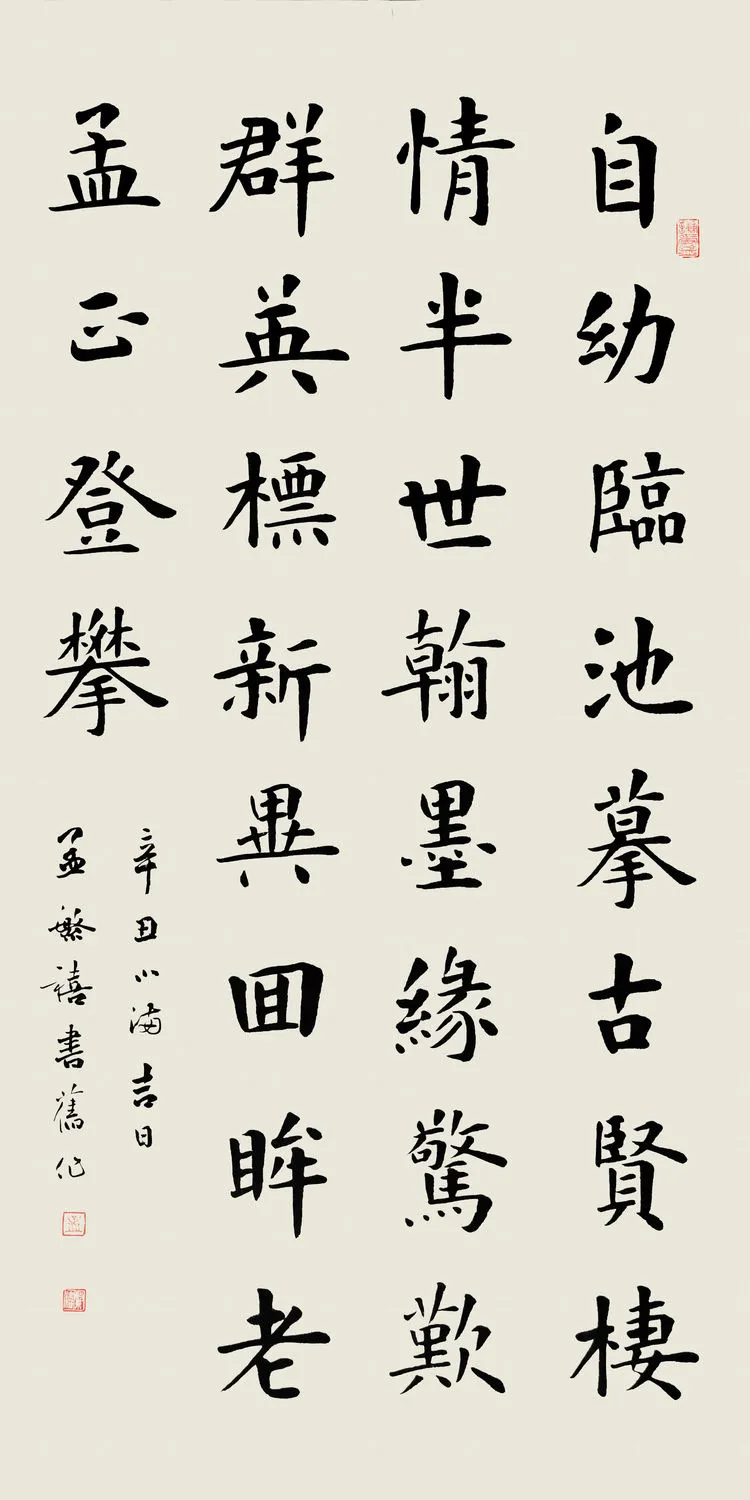 自幼臨池摹古賢棲
情半世翰墨緣驚歎
群英標新異回眸老
孟正登攀
辛丑小滿吉日
孟繁禧書舊作